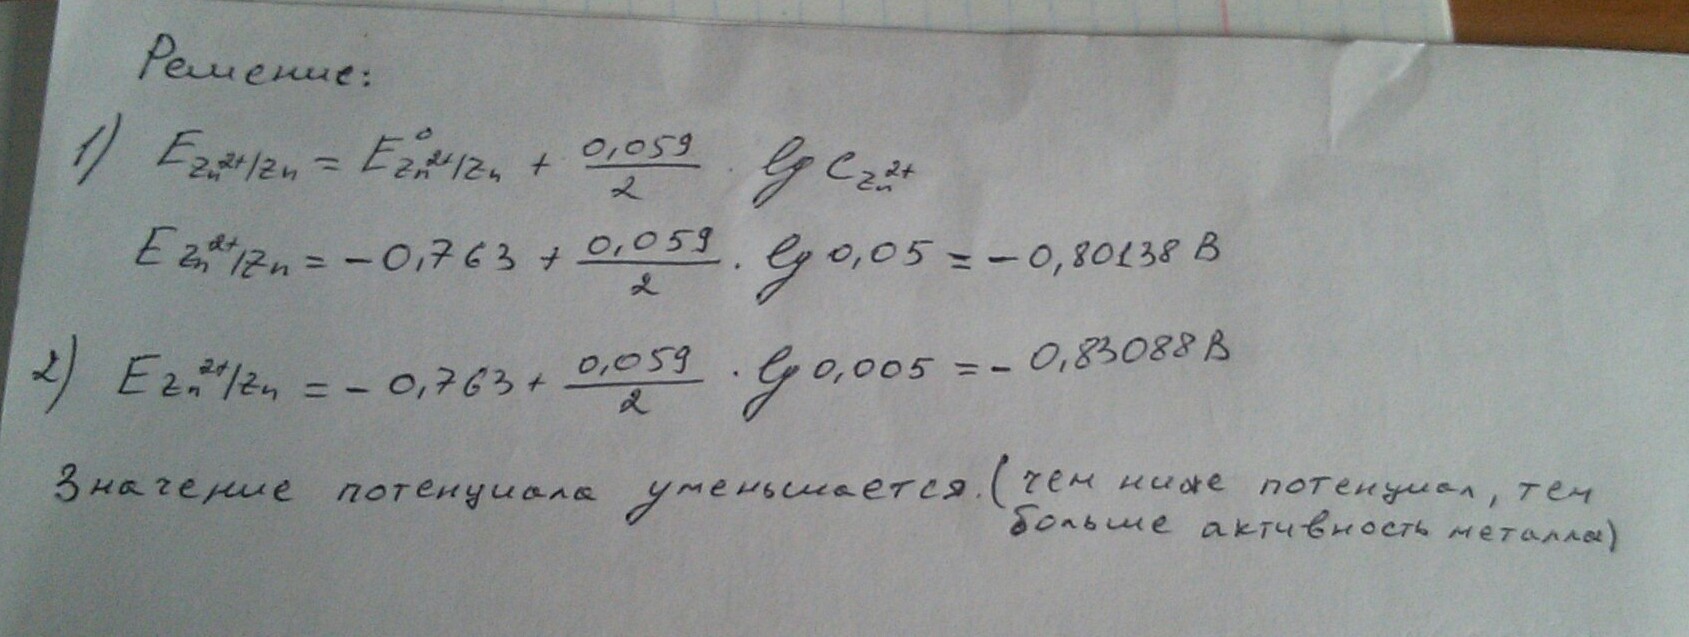 Решение:
1) E Zn²⁺/Zn = E⁰ Zn²⁺/Zn + 0,059/2 · lg C Zn²⁺
E Zn²⁺/Zn = -0,763 + 0,059/2 · lg 0,05 = -0,80138 В
2) E Zn²⁺/Zn = -0,763 + 0,059/2 · lg 0,005 = -0,83088 В
Значение потенциала уменьшается. (чем ниже потенциал, тем
больше активность металла)